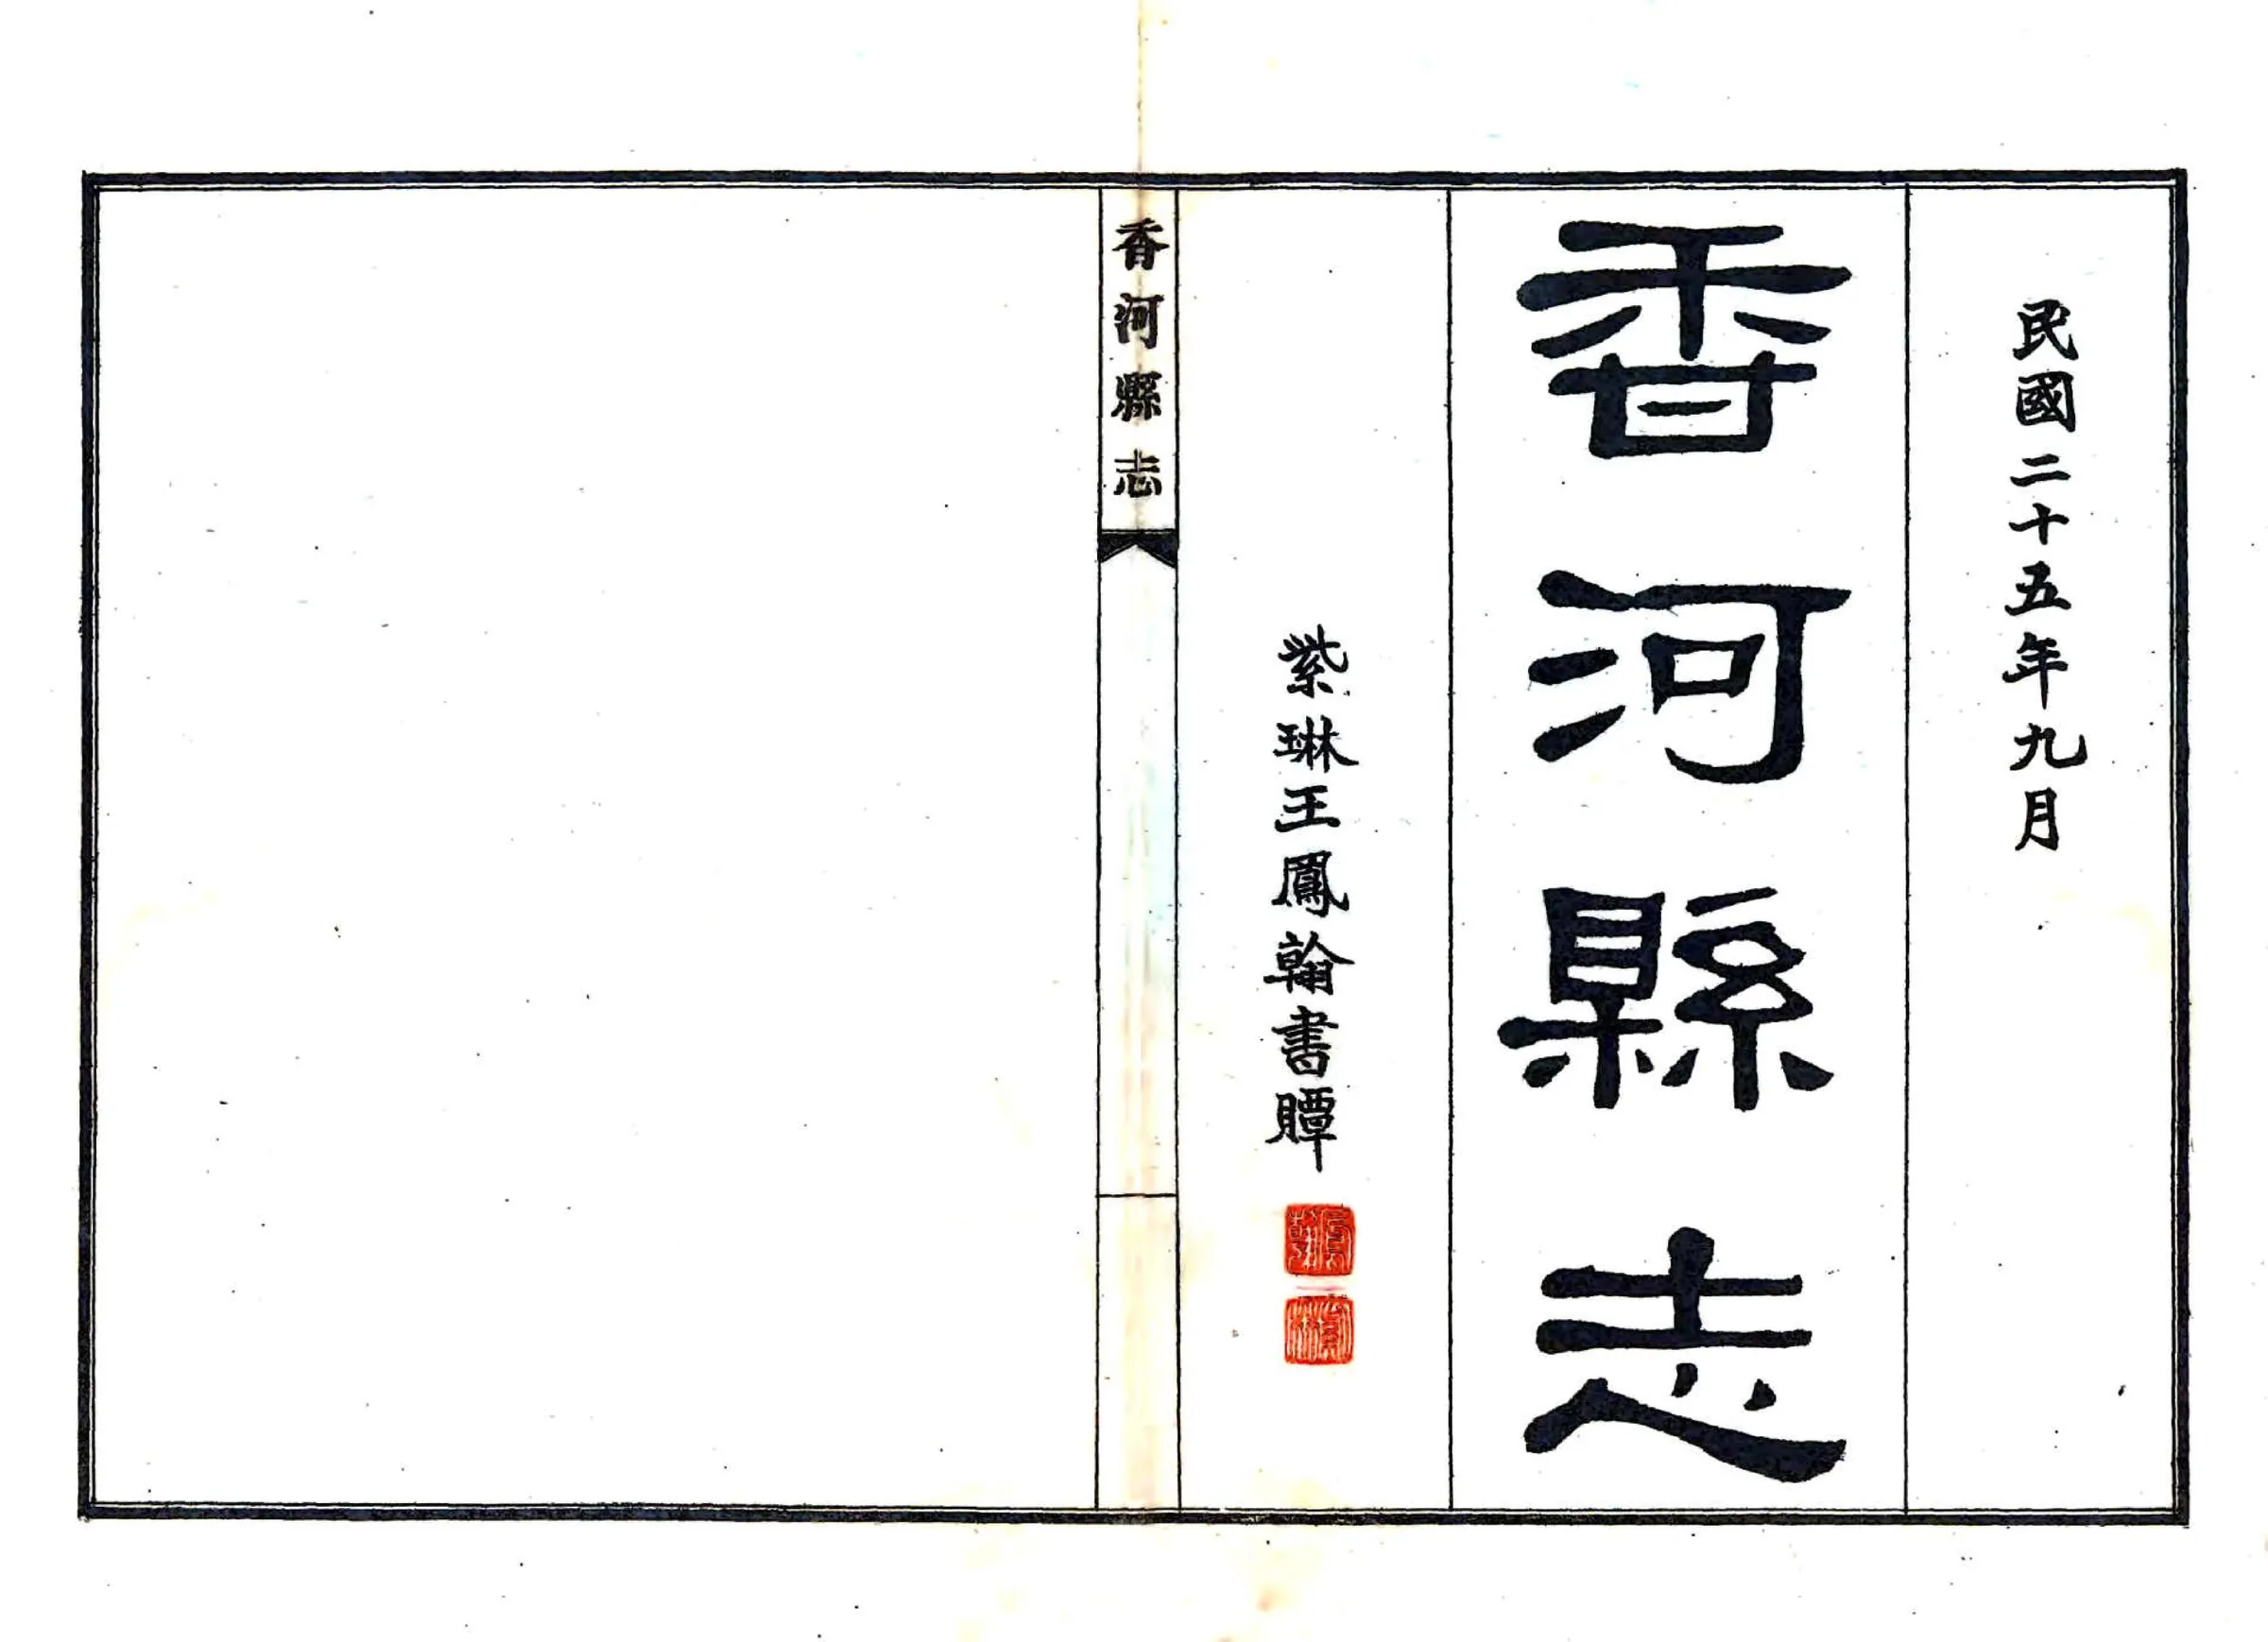 民國二十五年九月
香河縣志
紫琳王鳳翰書贉
香河縣志